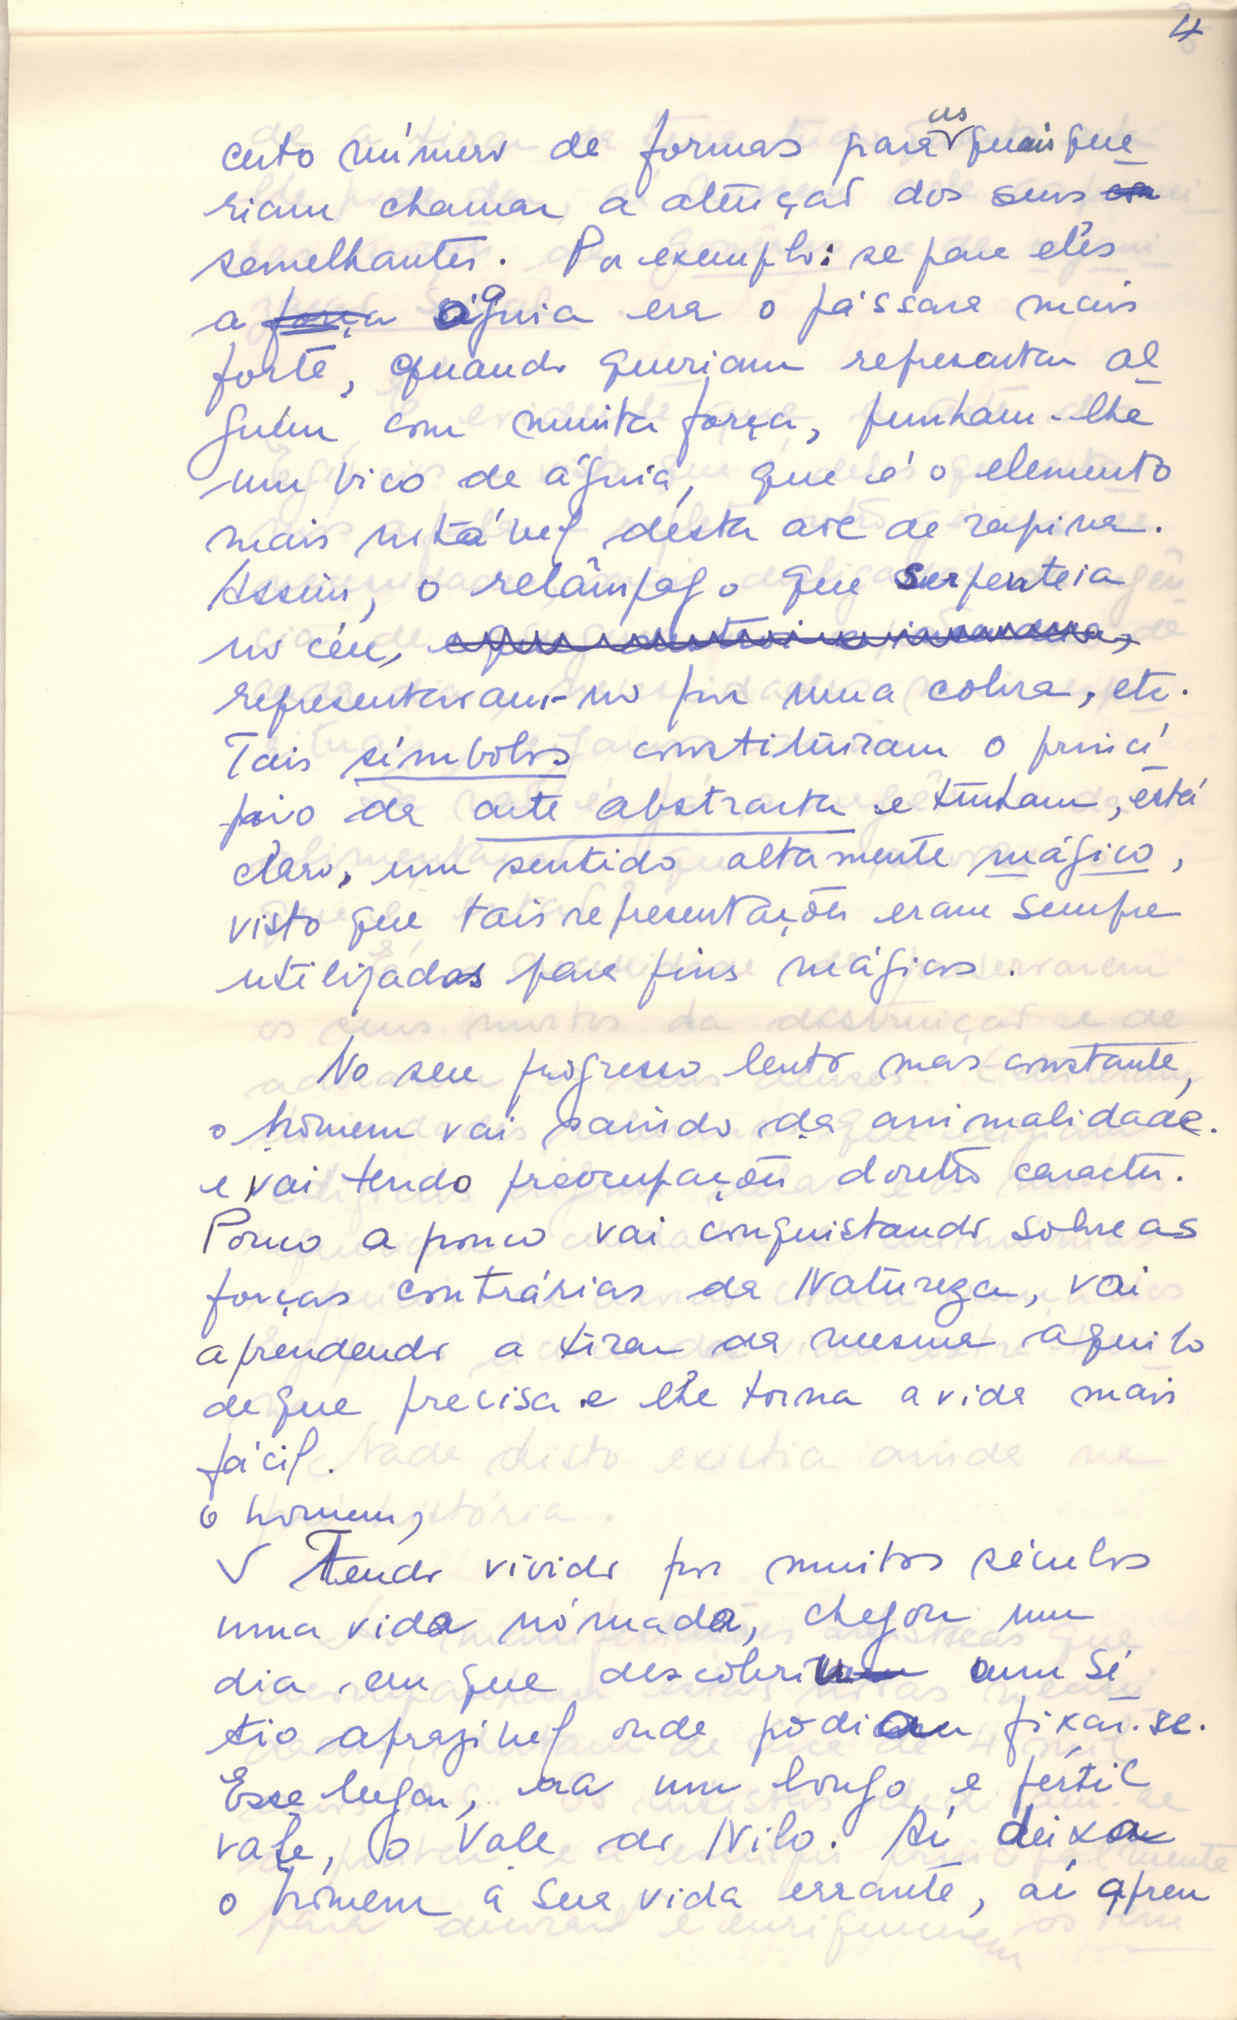 4
certo número de formas para as quais que
riam chamar a atenção dos seus
semelhantes. Por exemplo: se para eles
a força águia era o pássaro mais
forte, quando queriam representar al
guém com muita força, punham-lhe
um bico de águia, que é o elemento
mais notável desta ave de rapina.
Assim, o relâmpago que serpenteia
no céu,
representavam-no por uma cobra, etc.
Tais símbolos constituiram o princí
pio da arte abstracta e tinham, está
claro, um sentido altamente mágico,
visto que tais representações eram sempre
utilizadas para fins mágicos.
No seu progresso lento mas constante,
o homem vai saindo da animalidade.
e vai tendo preocupações doutro caracter.
Pouco a pouco vai conquistando sobre as
forças contrárias da Natureza, vai
aprendendo a tirar da mesma aquilo
de que precisa e lhe torna a vida mais
fácil.
o homem,
Tendo vivido por muitos séculos
uma vida nómada, chegou um
dia em que descobriu um sí
tio aprazível onde podia fixar-se.
Esse lugar, era um longo e fértil
vale, o Vale do Nilo. Aí deixa
o homem a sua vida errante, aí apren